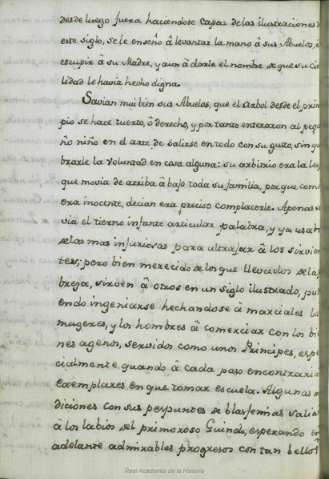 desde luego fuera haciendose capaz de las ilustraciones d
este siglo, se le enseñó â levantar la mano â sus Abuelos, â
escupir â su Madre, y aun â darle el nombre de que su
lidad le havia hecho digna.
Savian mui bien sus Abuelos, que el Arbol desde el prin
pio se hace tuerto, ô derecho, y por tanto enteraron al pequ
ño niño en el arte de salirse en todo con su gusto, sin qu
brarle la voluntad en cosa alguna: su arbitrio era la Ley
que movia de arriba â bajo toda su familia, porque como
era inocente, decian era preciso complacerle. Apenas s
via el tierno infante articular palabra, y ya usab
de las mas injuriosas para ultrajar â los sirvien
tes; pero bien merecido se lo que llevados de la
breja, sirven â otros en un siglo ilustrado, pu
endo ingeniarse hechandose â marciales la
mugeres, y los hombres â comerciar con los bi
nes agenos, servidos como unos Principes, espe
cialmente, quando â cada paso encontraria
exemplares en que tomar escuela. Algunas m
diciones con sus perpuntes de blasfemias salia
â los labios del primoroso Guindo, esperando en
adelante admirables progresos con tan bellos
Real Academia de la Historia